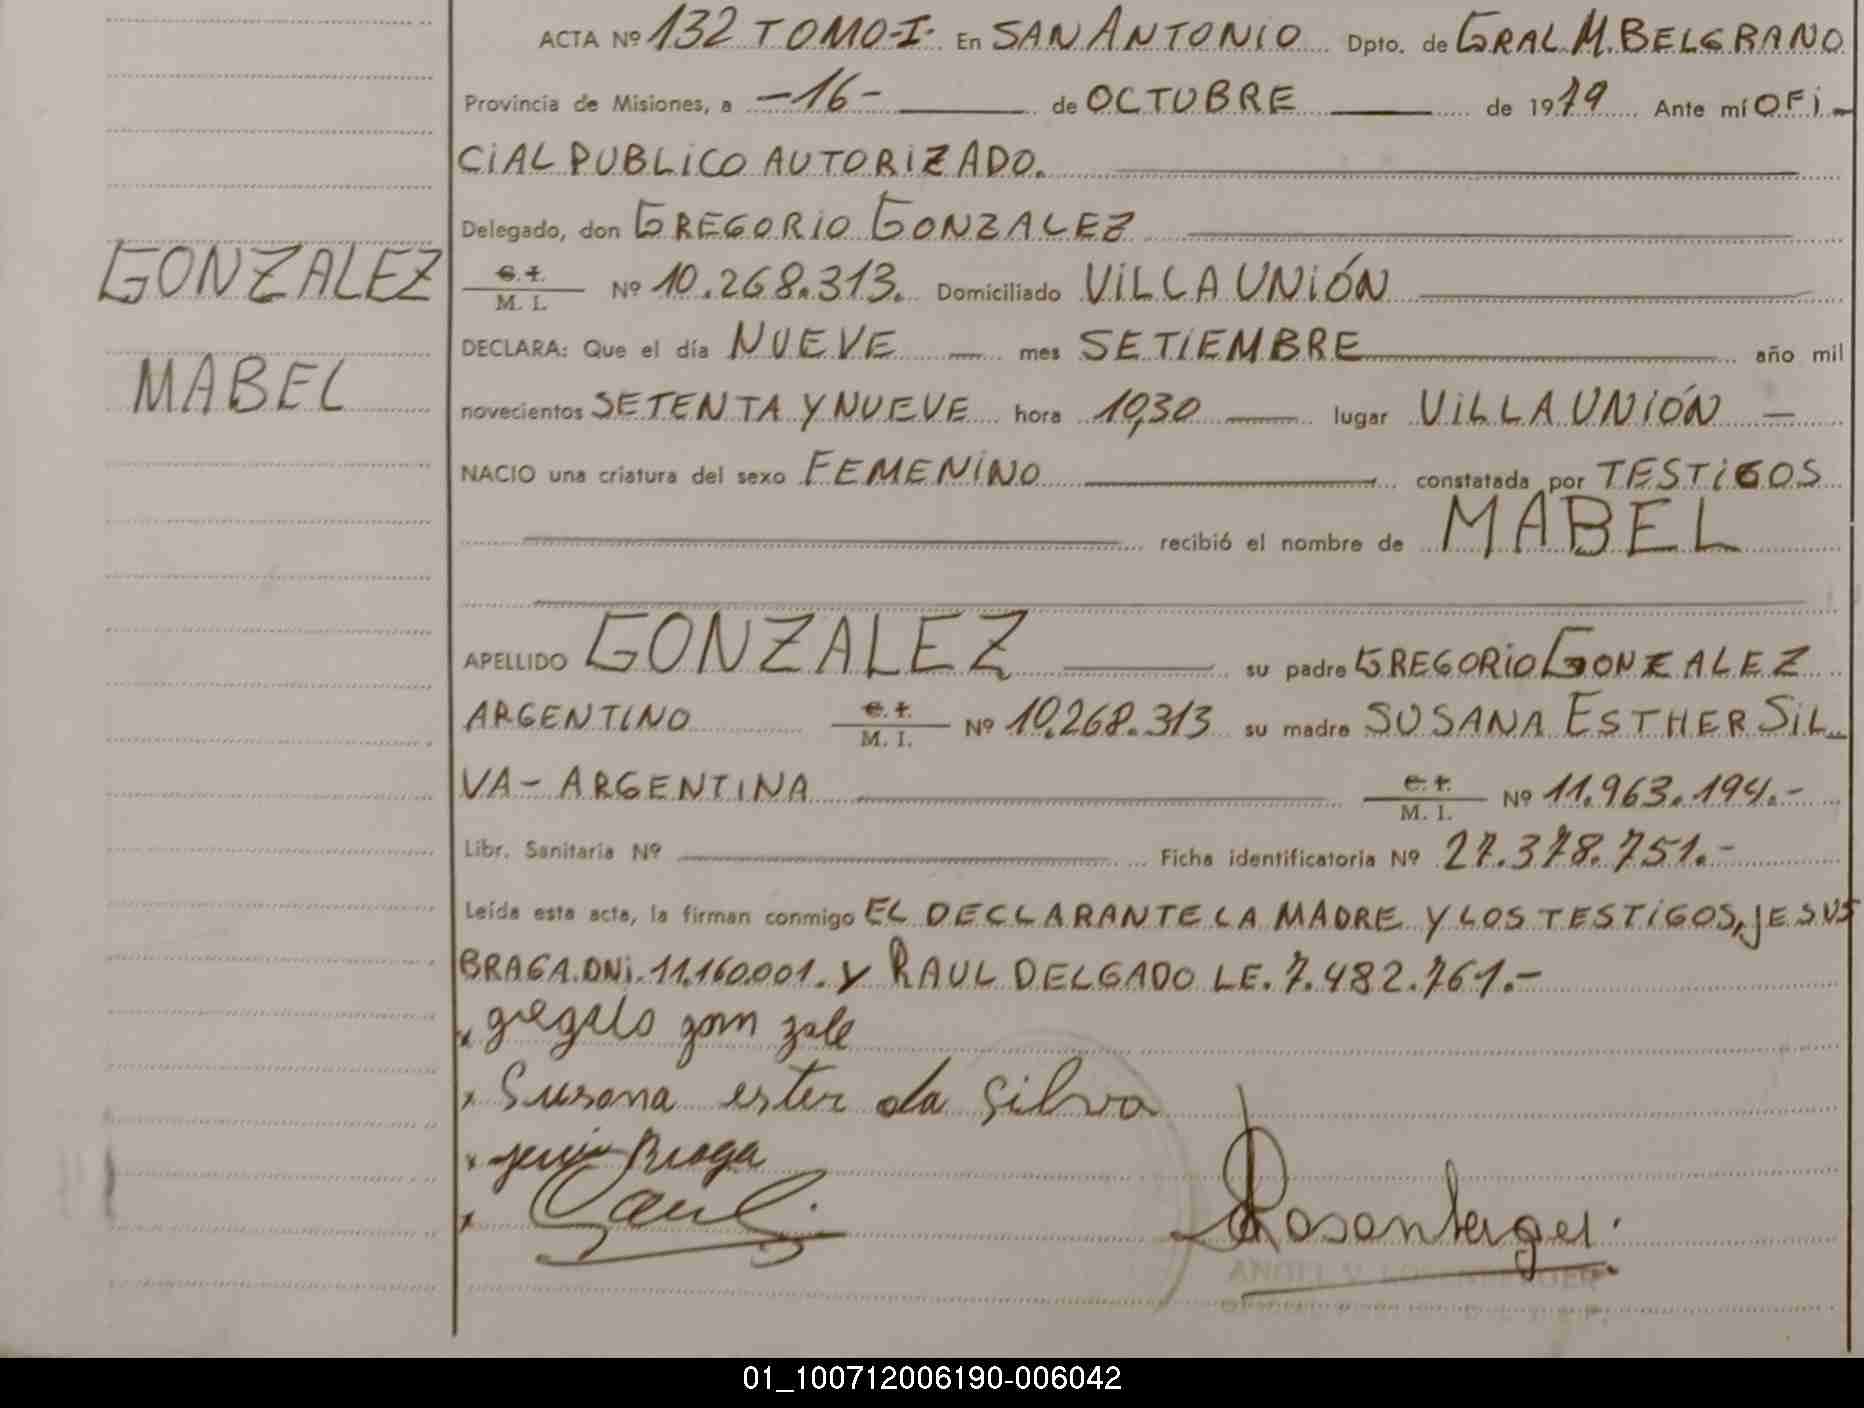 ACTA Nº 132 TOMO-I- En SAN ANTONIO Dpto. de GRAL M. BELGRANO
Provincia de Misiones, a -16- de OCTUBRE de 1979 Ante mí OFI-
CIAL PUBLICO AUTORIZADO.
Delegado, don GREGORIO GONZALEZ
GONZALEZ
C. I.
M. I. Nº 10.268.313. Domiciliado VILLA UNIÓN
DECLARA: Que el día NUEVE mes SETIEMBRE año mil
MABEL
novecientos SETENTA Y NUEVE hora 10,30 lugar VILLA UNIÓN
NACIO una criatura del sexo FEMENINO constatada por TESTIGOS
recibió el nombre de MABEL
APELLIDO GONZALEZ su padre GREGORIO GONZALEZ
ARGENTINO C. I.
M. I. Nº 10.268.313 su madre SUSANA ESTHER SIL-
VA - ARGENTINA C. I.
M. I. Nº 11.963.194.-
Libr. Sanitaria Nº Ficha identificatoria Nº 27.378.751.-
Leída esta acta, la firman conmigo EL DECLARANTE LA MADRE Y LOS TESTIGOS, JESUS
BRAGA.DNI.11.160.001. Y RAUL DELGADO LE.7.482.761.-
x
x Susana ester da silva
x Braga
x
Rosenberger
ANGEL V. ROSENBERGER
01_100712006190-006042